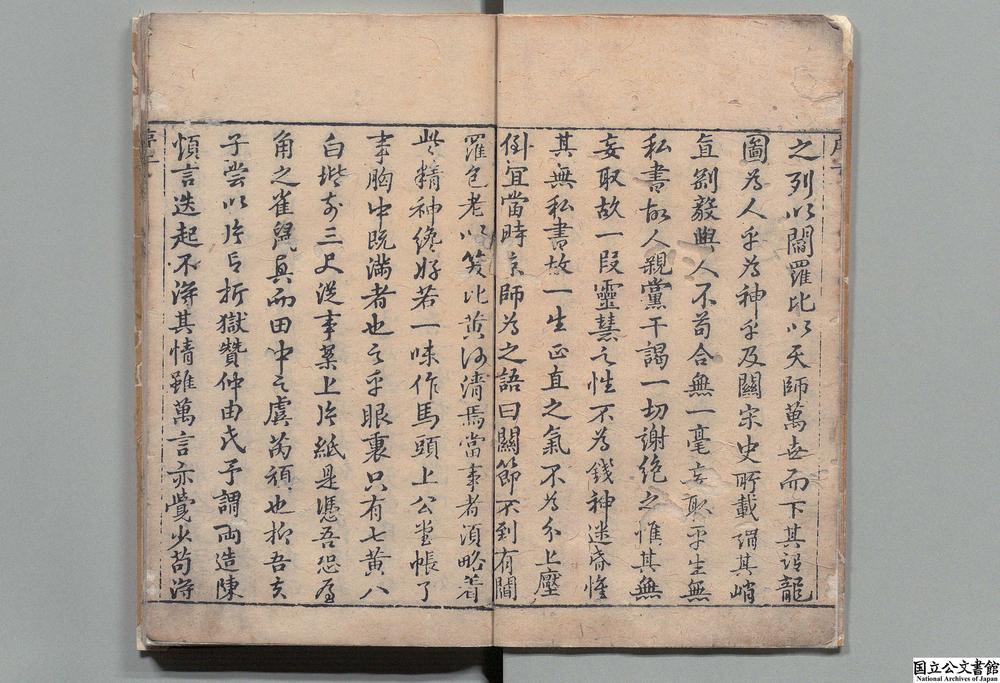 之列以閻羅比以天師萬世而下其詔龍
圖為人乎為神乎及閱宋史所載謂其峭
直剛毅與人不苟合無一毫妄取平生無
私書故人親黨干謁一切謝絕之惟其無
妄取故一段靈慧之性不為錢神迷昏惟
其無私書故一生正直之氣不為分上壓
倒宜當時京師為之語曰關節不到有閻
羅包老以笑比黃河清焉當事者須略着
些精神纔好若一味作馬頭上公坐帳了
事胸中既滿者也之乎眼裏只有七黃八
白堦前三尺從事案上片紙是憑吾恐屋
角之雀鼠具而田中之虞芮頑也抑吾夫
子嘗以片言折獄贊仲由氏予謂両造陳
情言迭起不得其情雖萬言亦覺少苟得
国立公文書館
National Archives of Japan